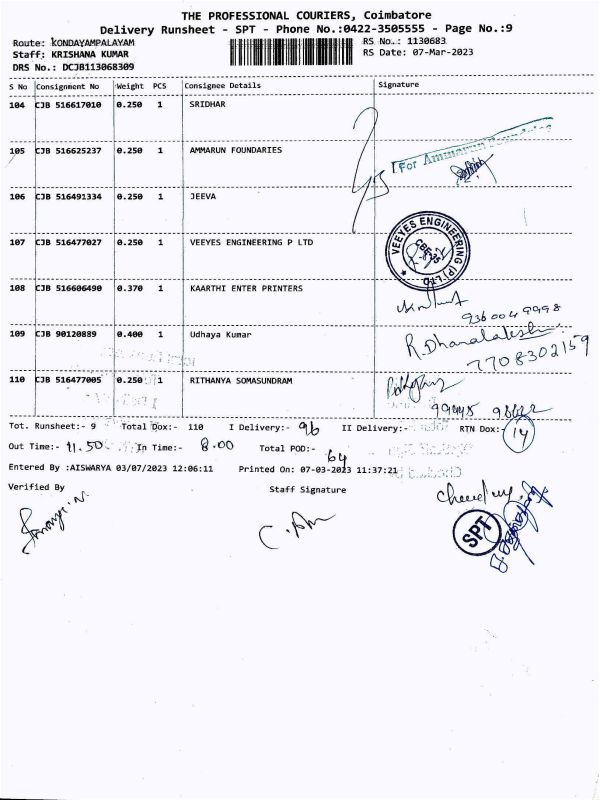 THE PROFESSIONAL COURIERS, Coimbatore
Delivery Runsheet - SPT - Phone No.:0422-3505555 - Page No.:9
Route: KONDAYAMPALAYAM
Staff: KRISHANA KUMAR
DRS No.: DCJB113068309
RS No.: 1130683
RS Date: 07-Mar-2023
S No Consignment No Weight PCS Consignee Details Signature
104 CJB 516617010 0.250 1 SRIDHAR
105 CJB 516625237 0.250 1 AMMARUN FOUNDARIES
For Ammarun
106 CJB 516491334 0.250 1 JEEVA
107 CJB 516477027 0.250 1 VEEYES ENGINEERING P LTD
VEEYES ENGINEERING (P) LTD
108 CJB 516606490 0.370 1 KAARTHI ENTER PRINTERS
936004 9998
109 CJB 90120889 0.400 1 Udhaya Kumar
R.Dhanalakshmi
7708302159
110 CJB 516477005 0.250 1 RITHANYA SOMASUNDRAM
Tot. Runsheet:- 9 Total Dox:- 110 I Delivery:- 96 II Delivery:- RTN Dox:- 14
Out Time:- 11.50 In Time:- 8.00 Total POD:- 64
Entered By :AISWARYA 03/07/2023 12:06:11 Printed On: 07-03-2023 11:37:21
Verified By Staff Signature
SPT